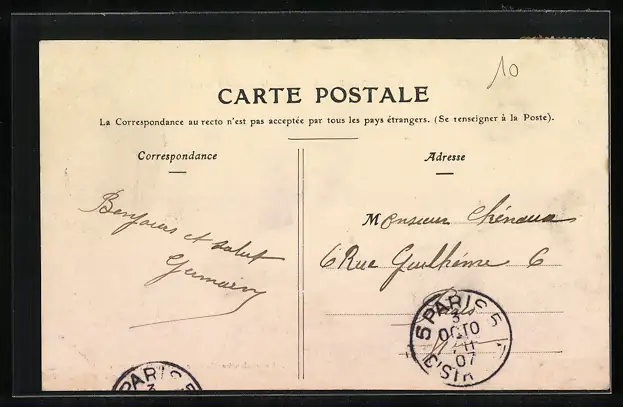 10
CARTE POSTALE
La Correspondance au recto n'est pas acceptée par tous les pays étrangers. (Se renseigner à la Poste).
Correspondance
Adresse
Bonjours et salut
Germain
Monsieur Chénaux
6 Rue Guilhème 6
PARIS 5
3
OCT
07
PARIS 5
3